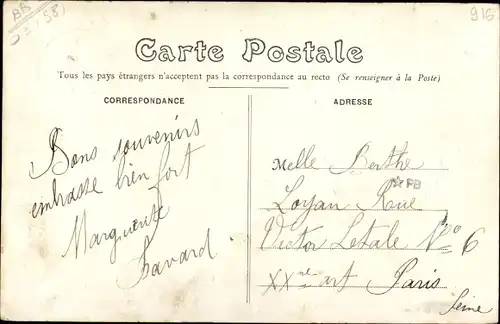 BB
916
Carte Postale
Tous les pays étrangers n'acceptent pas la correspondance au recto (Se renseigner à la Poste)
CORRESPONDANCE
ADRESSE
Bons souvenirs
embrasse bien fort
Marguerite
Savard
Melle Berthe
Loyan Rue
PB
Victor Letale No 6
XXme art Paris
Seine